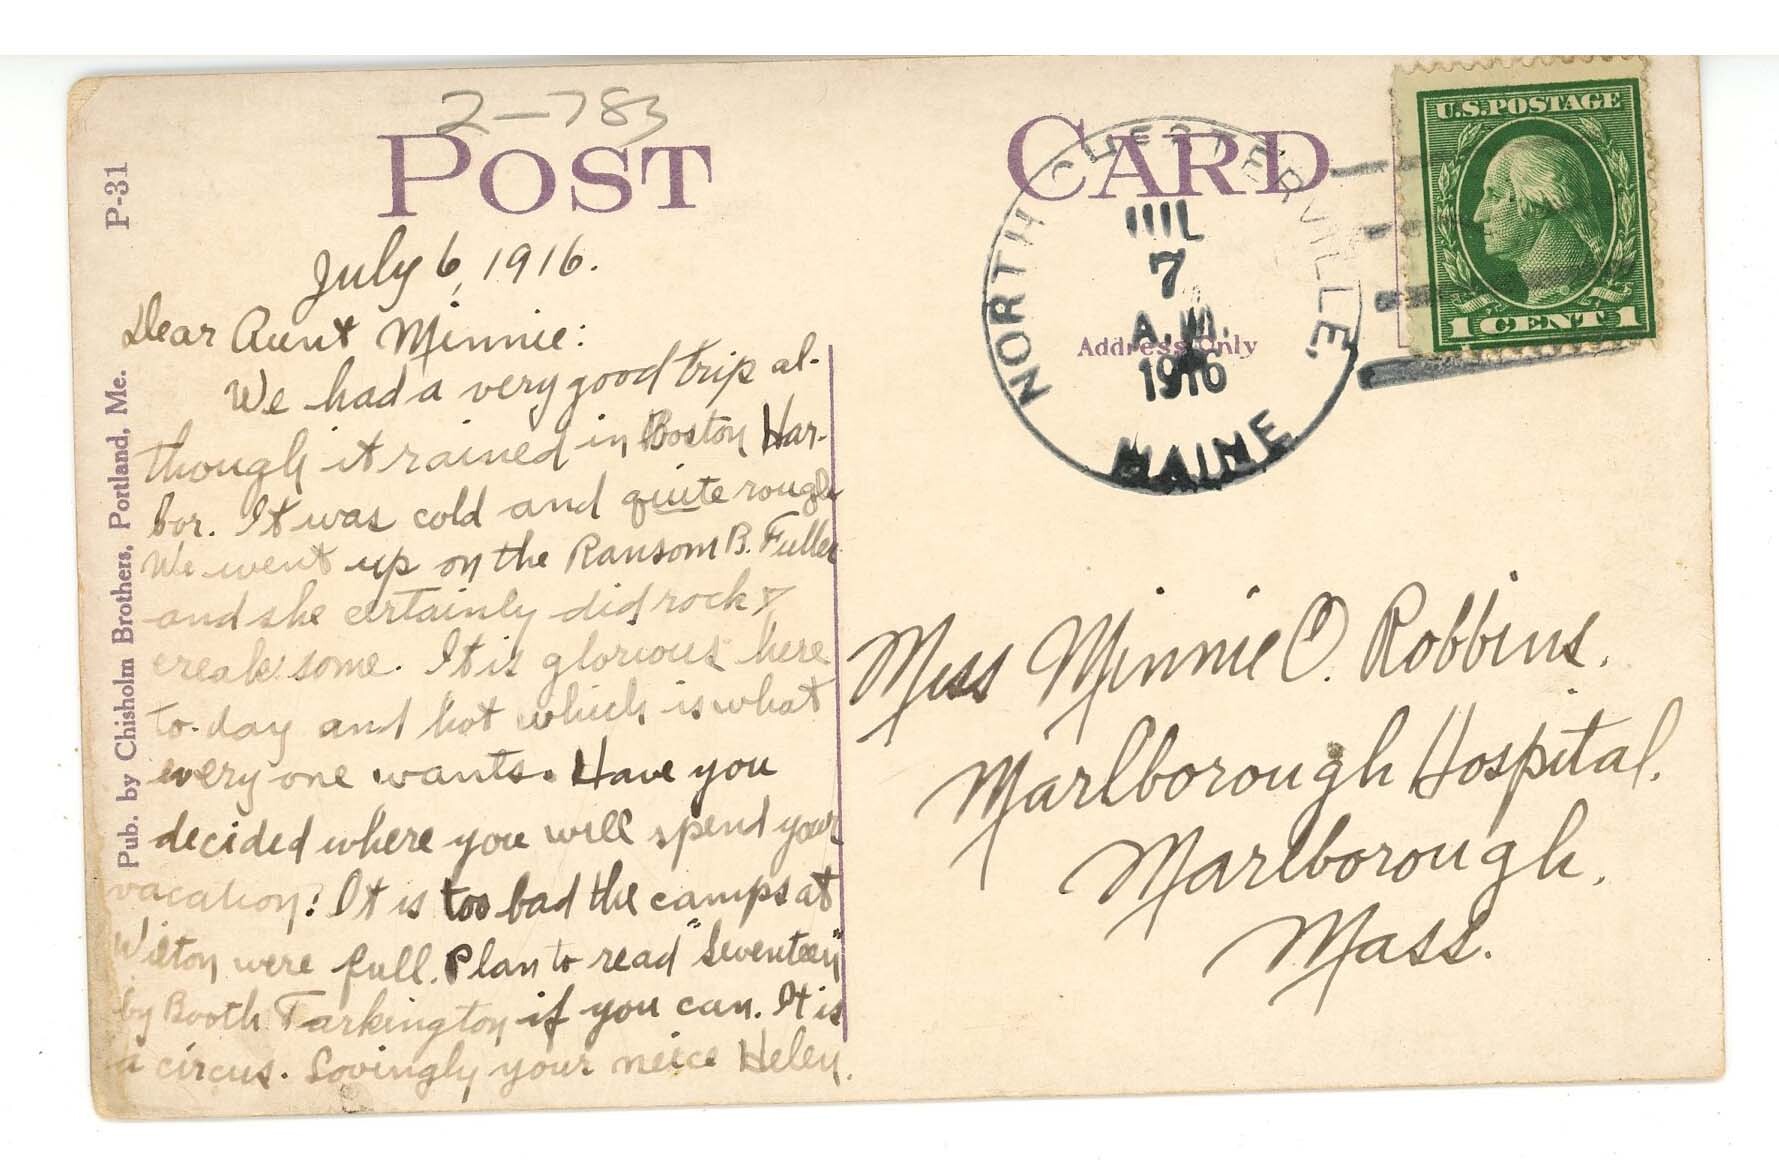 2-783
POST CARD
P-31
Pub. by Chisholm Brothers, Portland, Me.
July 6, 1916.
Dear Aunt Minnie:
We had a very good trip al-
though it rained in Boston Har-
bor. It was cold and quite rough
We went up on the Ransom B. Fuller
and she certainly did rock &
creak some. It is glorious here
to-day and hot which is what
every one wants. Have you
decided where you will spend your
vacation? It is too bad the camps at
Wilton were full. Plan to read "Seventeen"
by Booth Tarkington if you can. It is
a circus. Lovingly your neice Helen.
NORTH VILLE.
JUL
7
A.M.
1916
MAINE
Address Only
U.S. POSTAGE
1 CENT 1
Miss Minnie O. Robbins.
Marlborough Hospital,
Marlborough,
Mass.